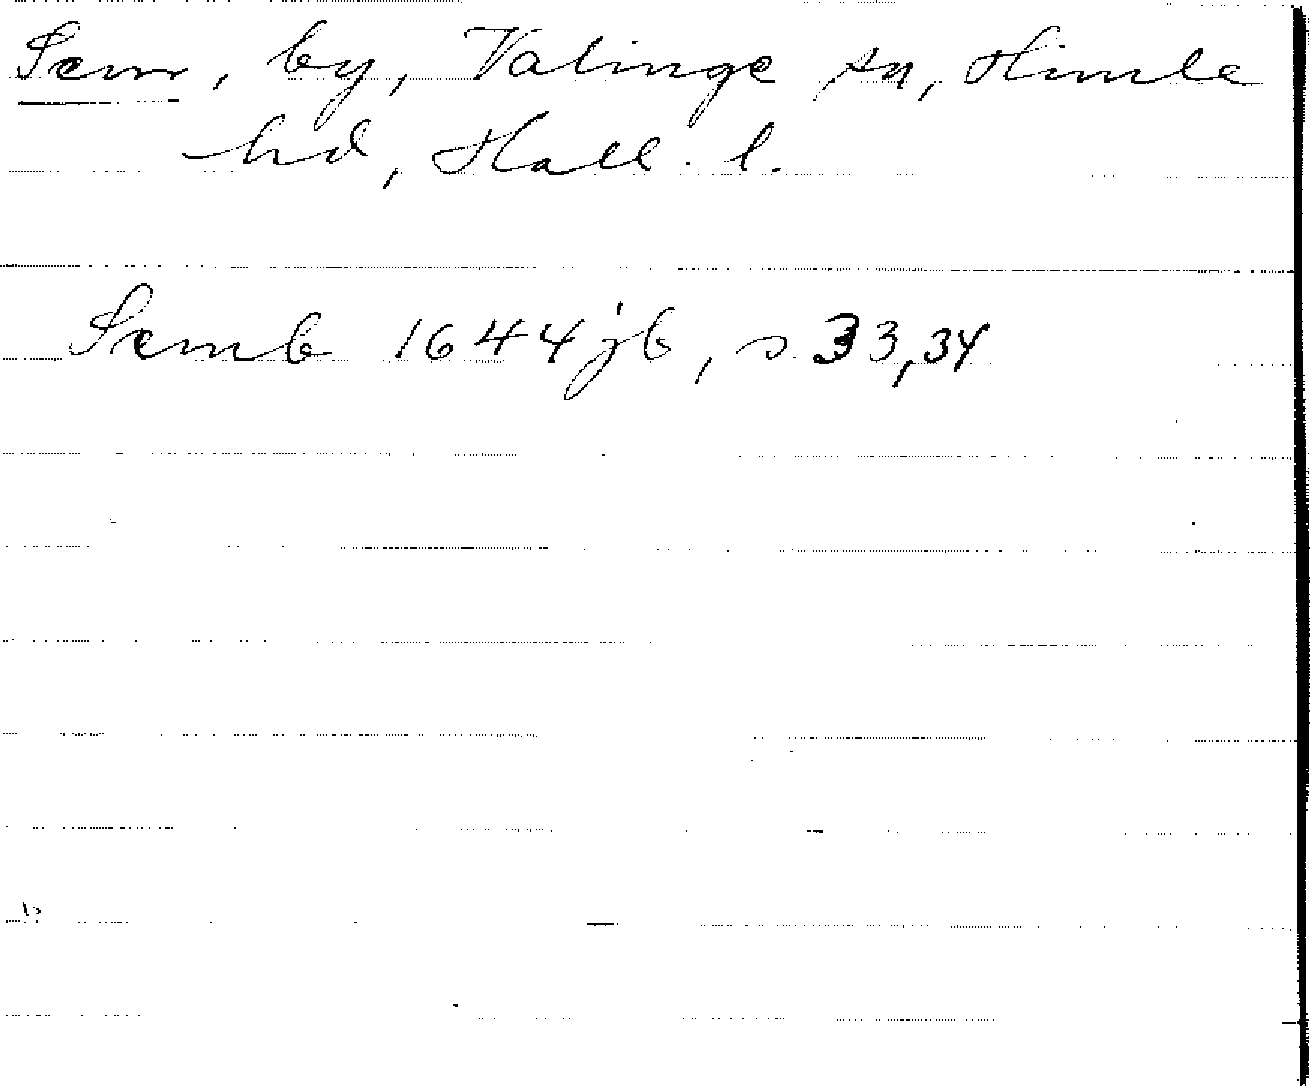 Sem, by, Valinge sn, Himle
hd, Hall. l.
Semb 1644 jb, s 33,34